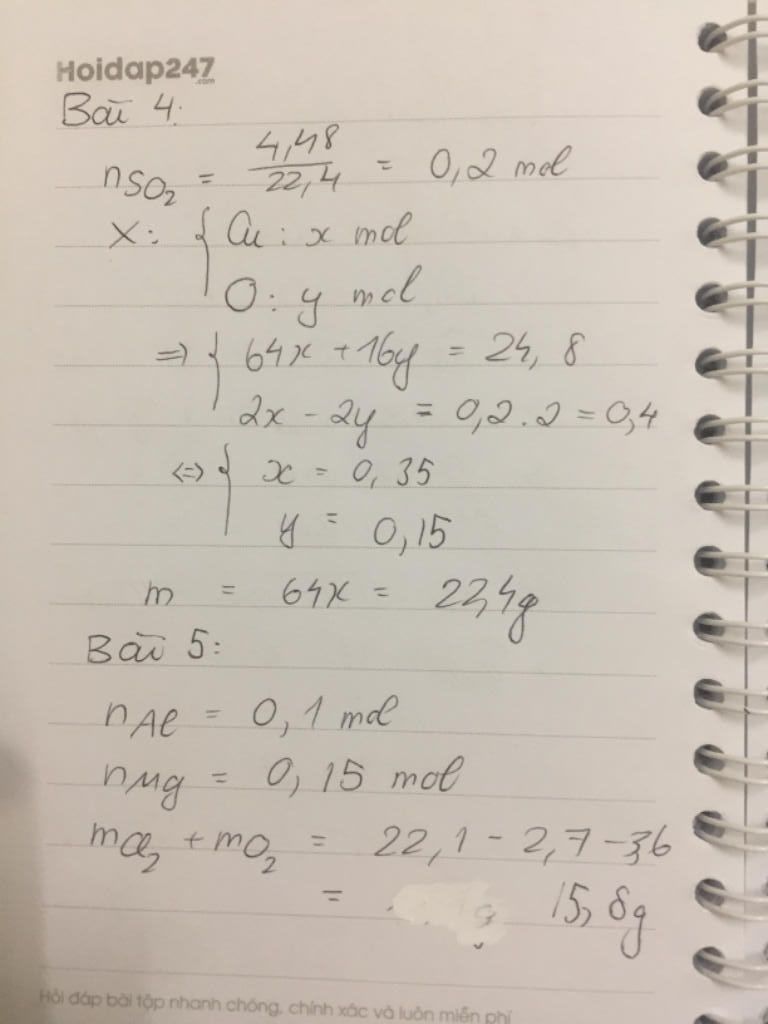 Hoidap247
.com
Bài 4:
nSO₂ = 4,48/22,4 = 0,2 mol
X: { Cu : x mol
O : y mol
=> { 64x + 16y = 24,8
2x - 2y = 0,2.2 = 0,4
<=> { x = 0,35
y = 0,15
m = 64x = 22,4g
Bài 5:
nAl = 0,1 mol
nMg = 0,15 mol
mCl₂ + mO₂ = 22,1 - 2,7 - 3,6
= 15,8g
Hỏi đáp bài tập nhanh chóng, chính xác và luôn miễn phí